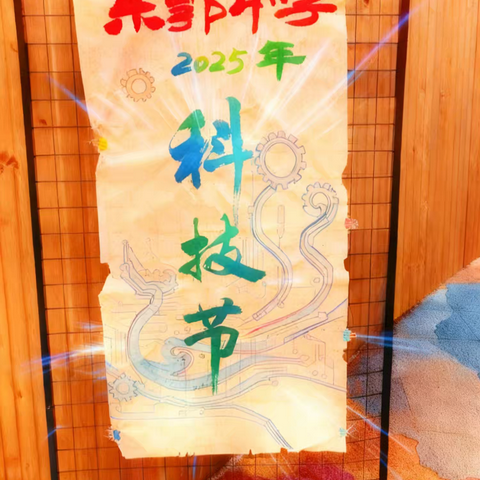 东郭中学
2025年
科
技
节